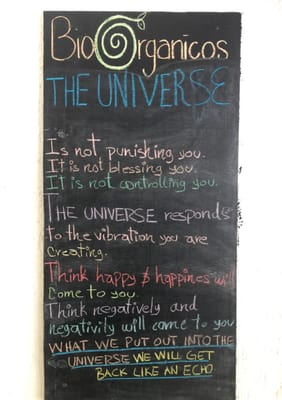 BioOrganicos
THE UNIVERSE
Is not punishing you.
It is not blessing you.
It is not controlling you.
THE UNIVERSE responds
to the vibration you are
Creating.
Think happy & happines will
Come to you.
Think negatively and
negativity will come to you
WHAT WE PUT OUT INTO THE
UNIVERSE WE WILL GET
BACK LIKE AN ECHO.